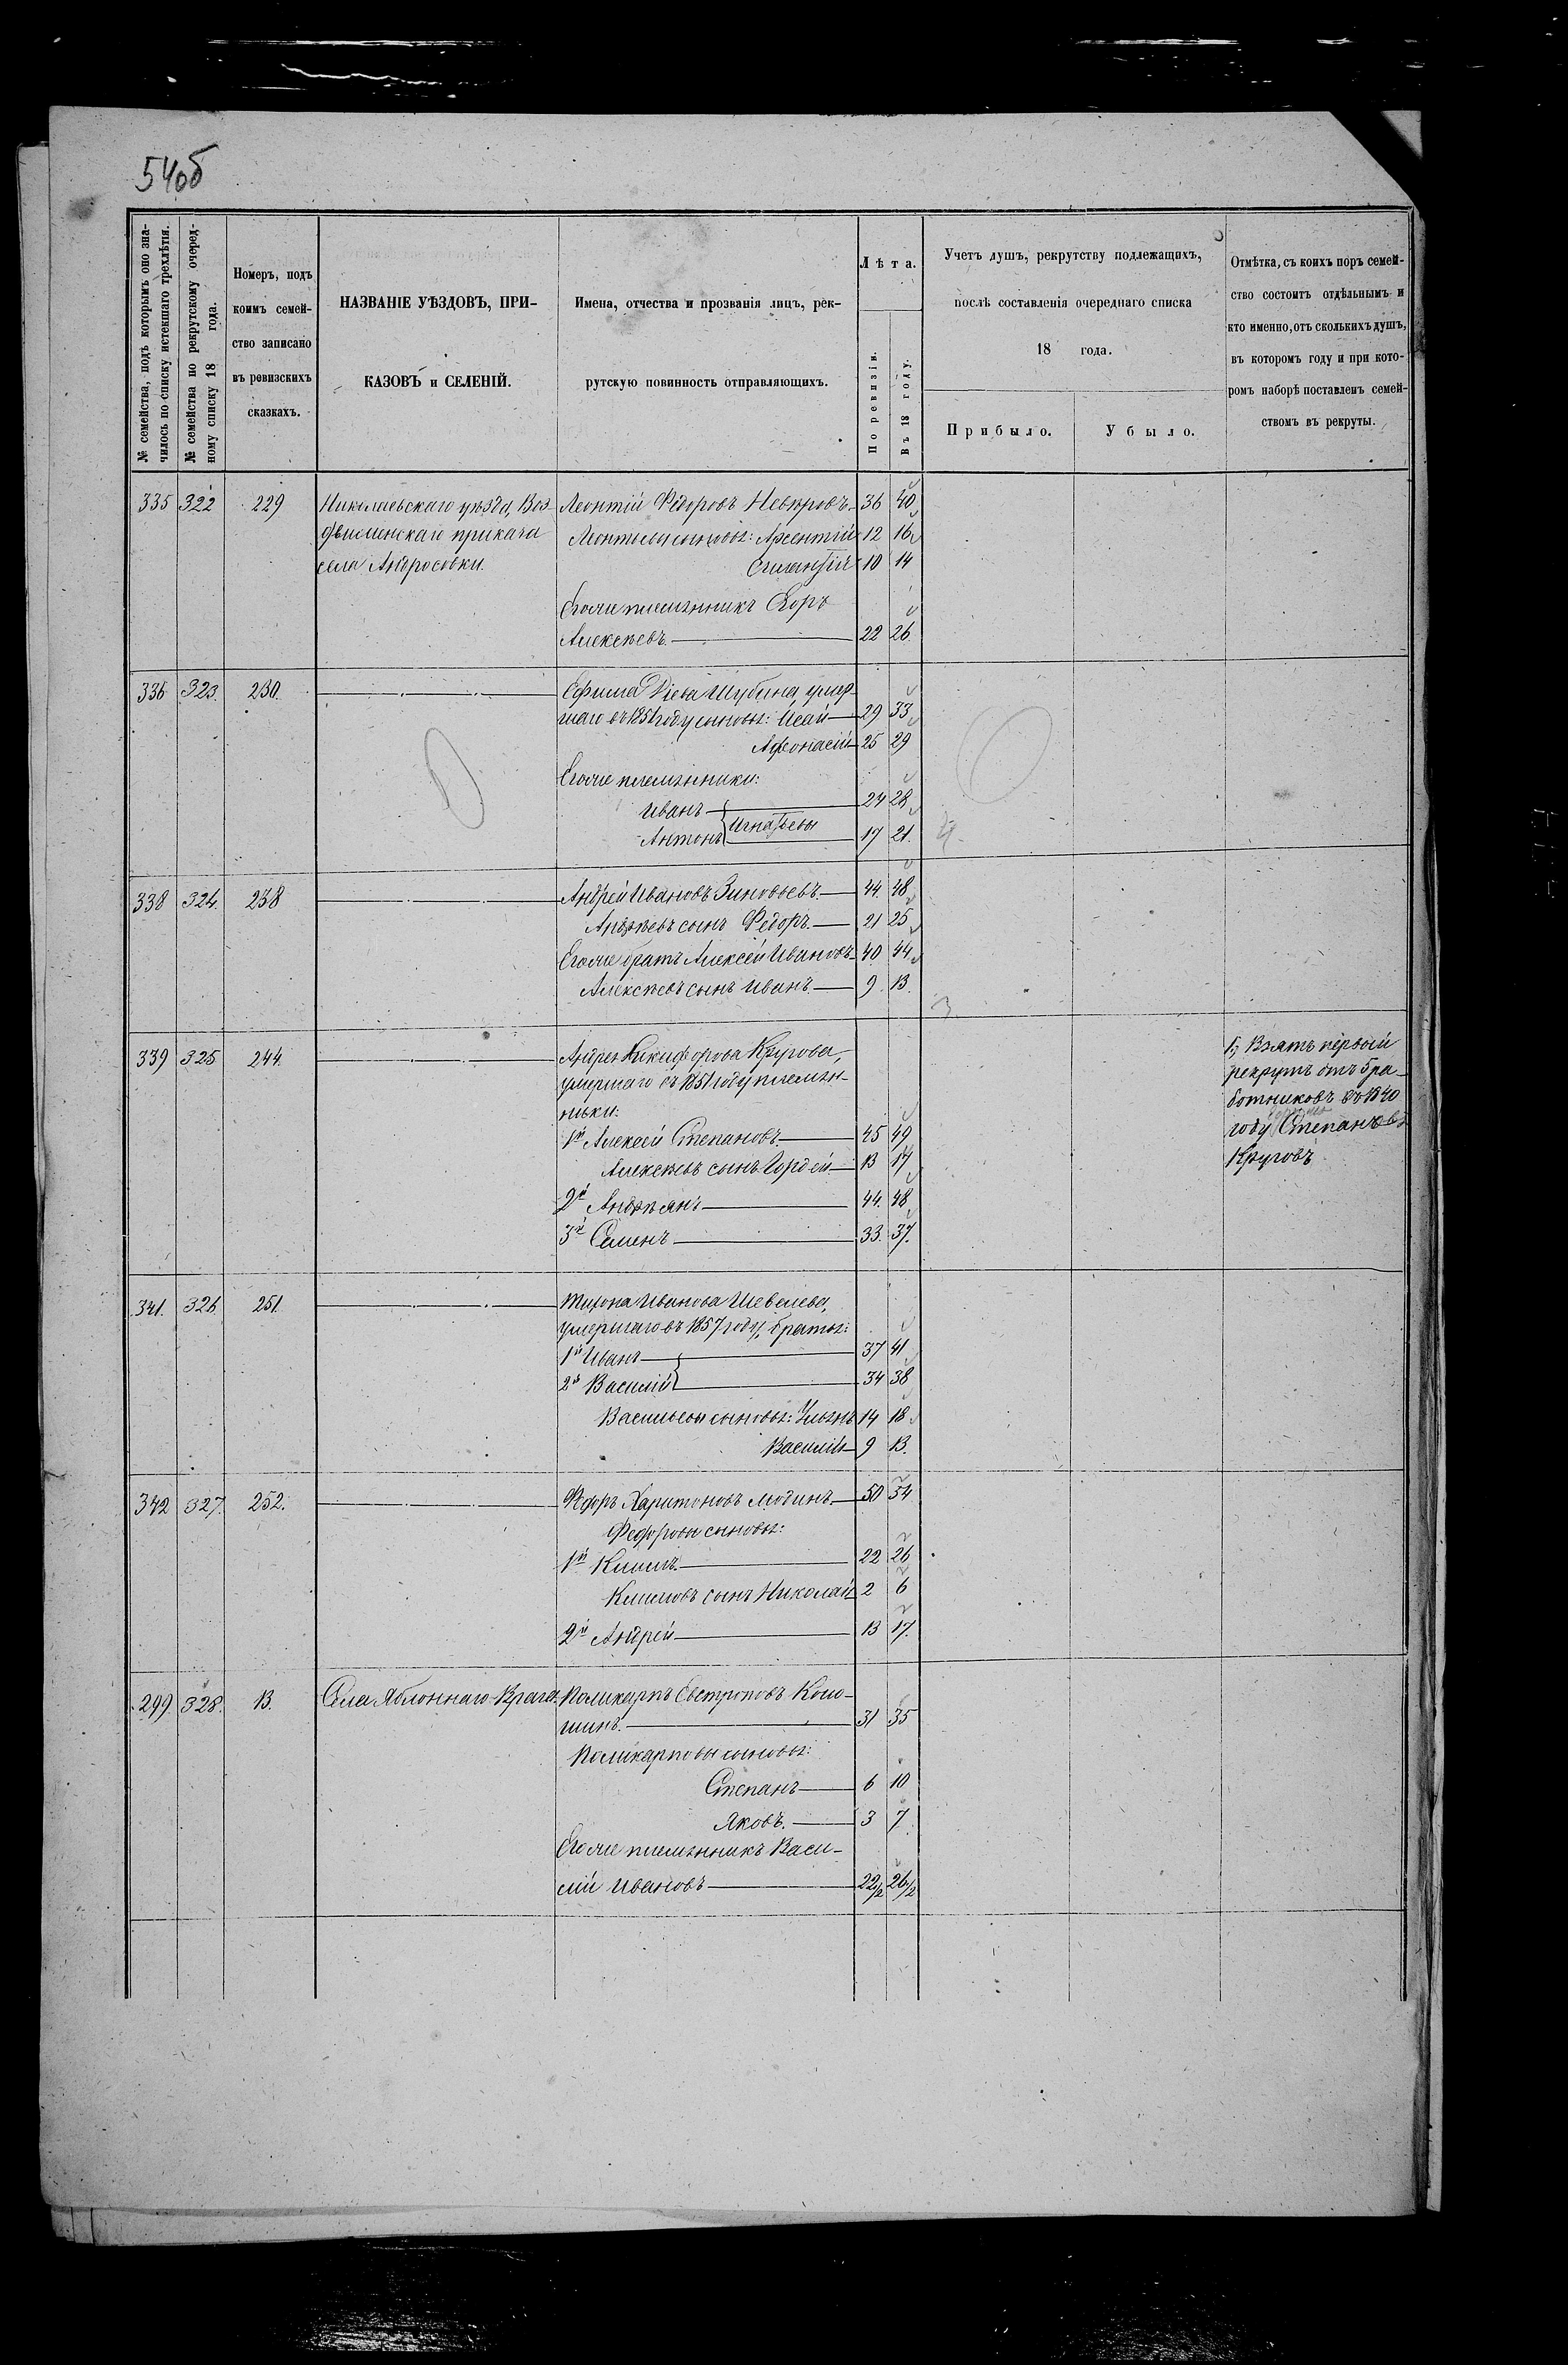 54об
№ семейства, подъ которымъ оно зна-
чилось по списку истекшаго трехлѣтія.
№ семейства по рекрутскому очеред-
ному списку 18 года.
Номеръ, подъ
коимъ семей-
ство записано
въ ревизскихъ
сказкахъ.
НАЗВАНІЕ УѢЗДОВЪ, ПРИ-
КАЗОВЪ и СЕЛЕНІЙ.
Имена, отчества и прозванія лицъ, рек-
рутскую повинность отправляющихъ.
Лѣта.
По ревизіи.
Въ 18 году.
Учетъ душъ, рекрутству подлежащихъ,
послѣ составленія очереднаго списка
18 года.
Прибыло.
Убыло.
Отмѣтка, съ коихъ поръ семей-
ство состоитъ отдѣльнымъ и
кто именно, отъ сколькихъ душъ,
въ которомъ году и при кото-
ромъ наборѣ поставленъ семей-
ствомъ въ рекруты.
335 322 229 Николаевскаго уѣзда, Воз- Леонтій Федоровъ Невѣровъ 36 40
движенскаго приказа Леонтьевы сыновья: Арсентій 12 16
села Андросовки. 10 14
Егоже племянникъ Егоръ
Алексѣевъ 22 26
336 323 230. Ефима Діева Шубина, умер-
шаго въ 1851 году сыновья: Исай 29 33
Афонасій 25 29
Егоже племянники:
Иванъ 24 28
Антонъ Игнатьевы 17 21.
338 324. 238 Андрей Ивановъ Зиновьевъ 44. 48
Андреевъ сынъ Федоръ. 21 25
Егоже братъ Алексей Ивановъ 40 44
Алексѣевъ сынъ Иванъ 9 13.
339 325 244. Андрея Никифорова Кругова,
умершаго въ 1851 году племян-
ники:
1й Алексей Степановъ 45 49
Алексѣевъ сынъ Гордей 13 17
2й Андреянъ 44. 48
3й Семенъ 33. 37.
1, Взятъ первый
рекрутъ отъ 5 ра-
ботниковъ въ 1840
году Степановъ
Круговъ
341. 326 251. Тихона Иванова Шевелева,
умершаго въ 1857 году, братья:
1й Иванъ 37 41
2й Василій 34 38
Васильевы сыновья: Ульянъ 14 18
Василій 9 13.
342 327. 252. Федоръ Харитоновъ Людинъ 50 54
Федоровы сыновья:
1й Климъ. 22 26
Климовъ сынъ Николай 2 6
2й Андрей 13 17.
299 328. 13. Села Яблоннаго-Врага. Поликарпъ Евстроповъ Коно-
шинъ. 31 35
Поликарповы сыновья:
Степанъ 6 10
Яковъ. 3 7
Егоже племянникъ Васи-
лій Ивановъ 22 1/2 26 1/2